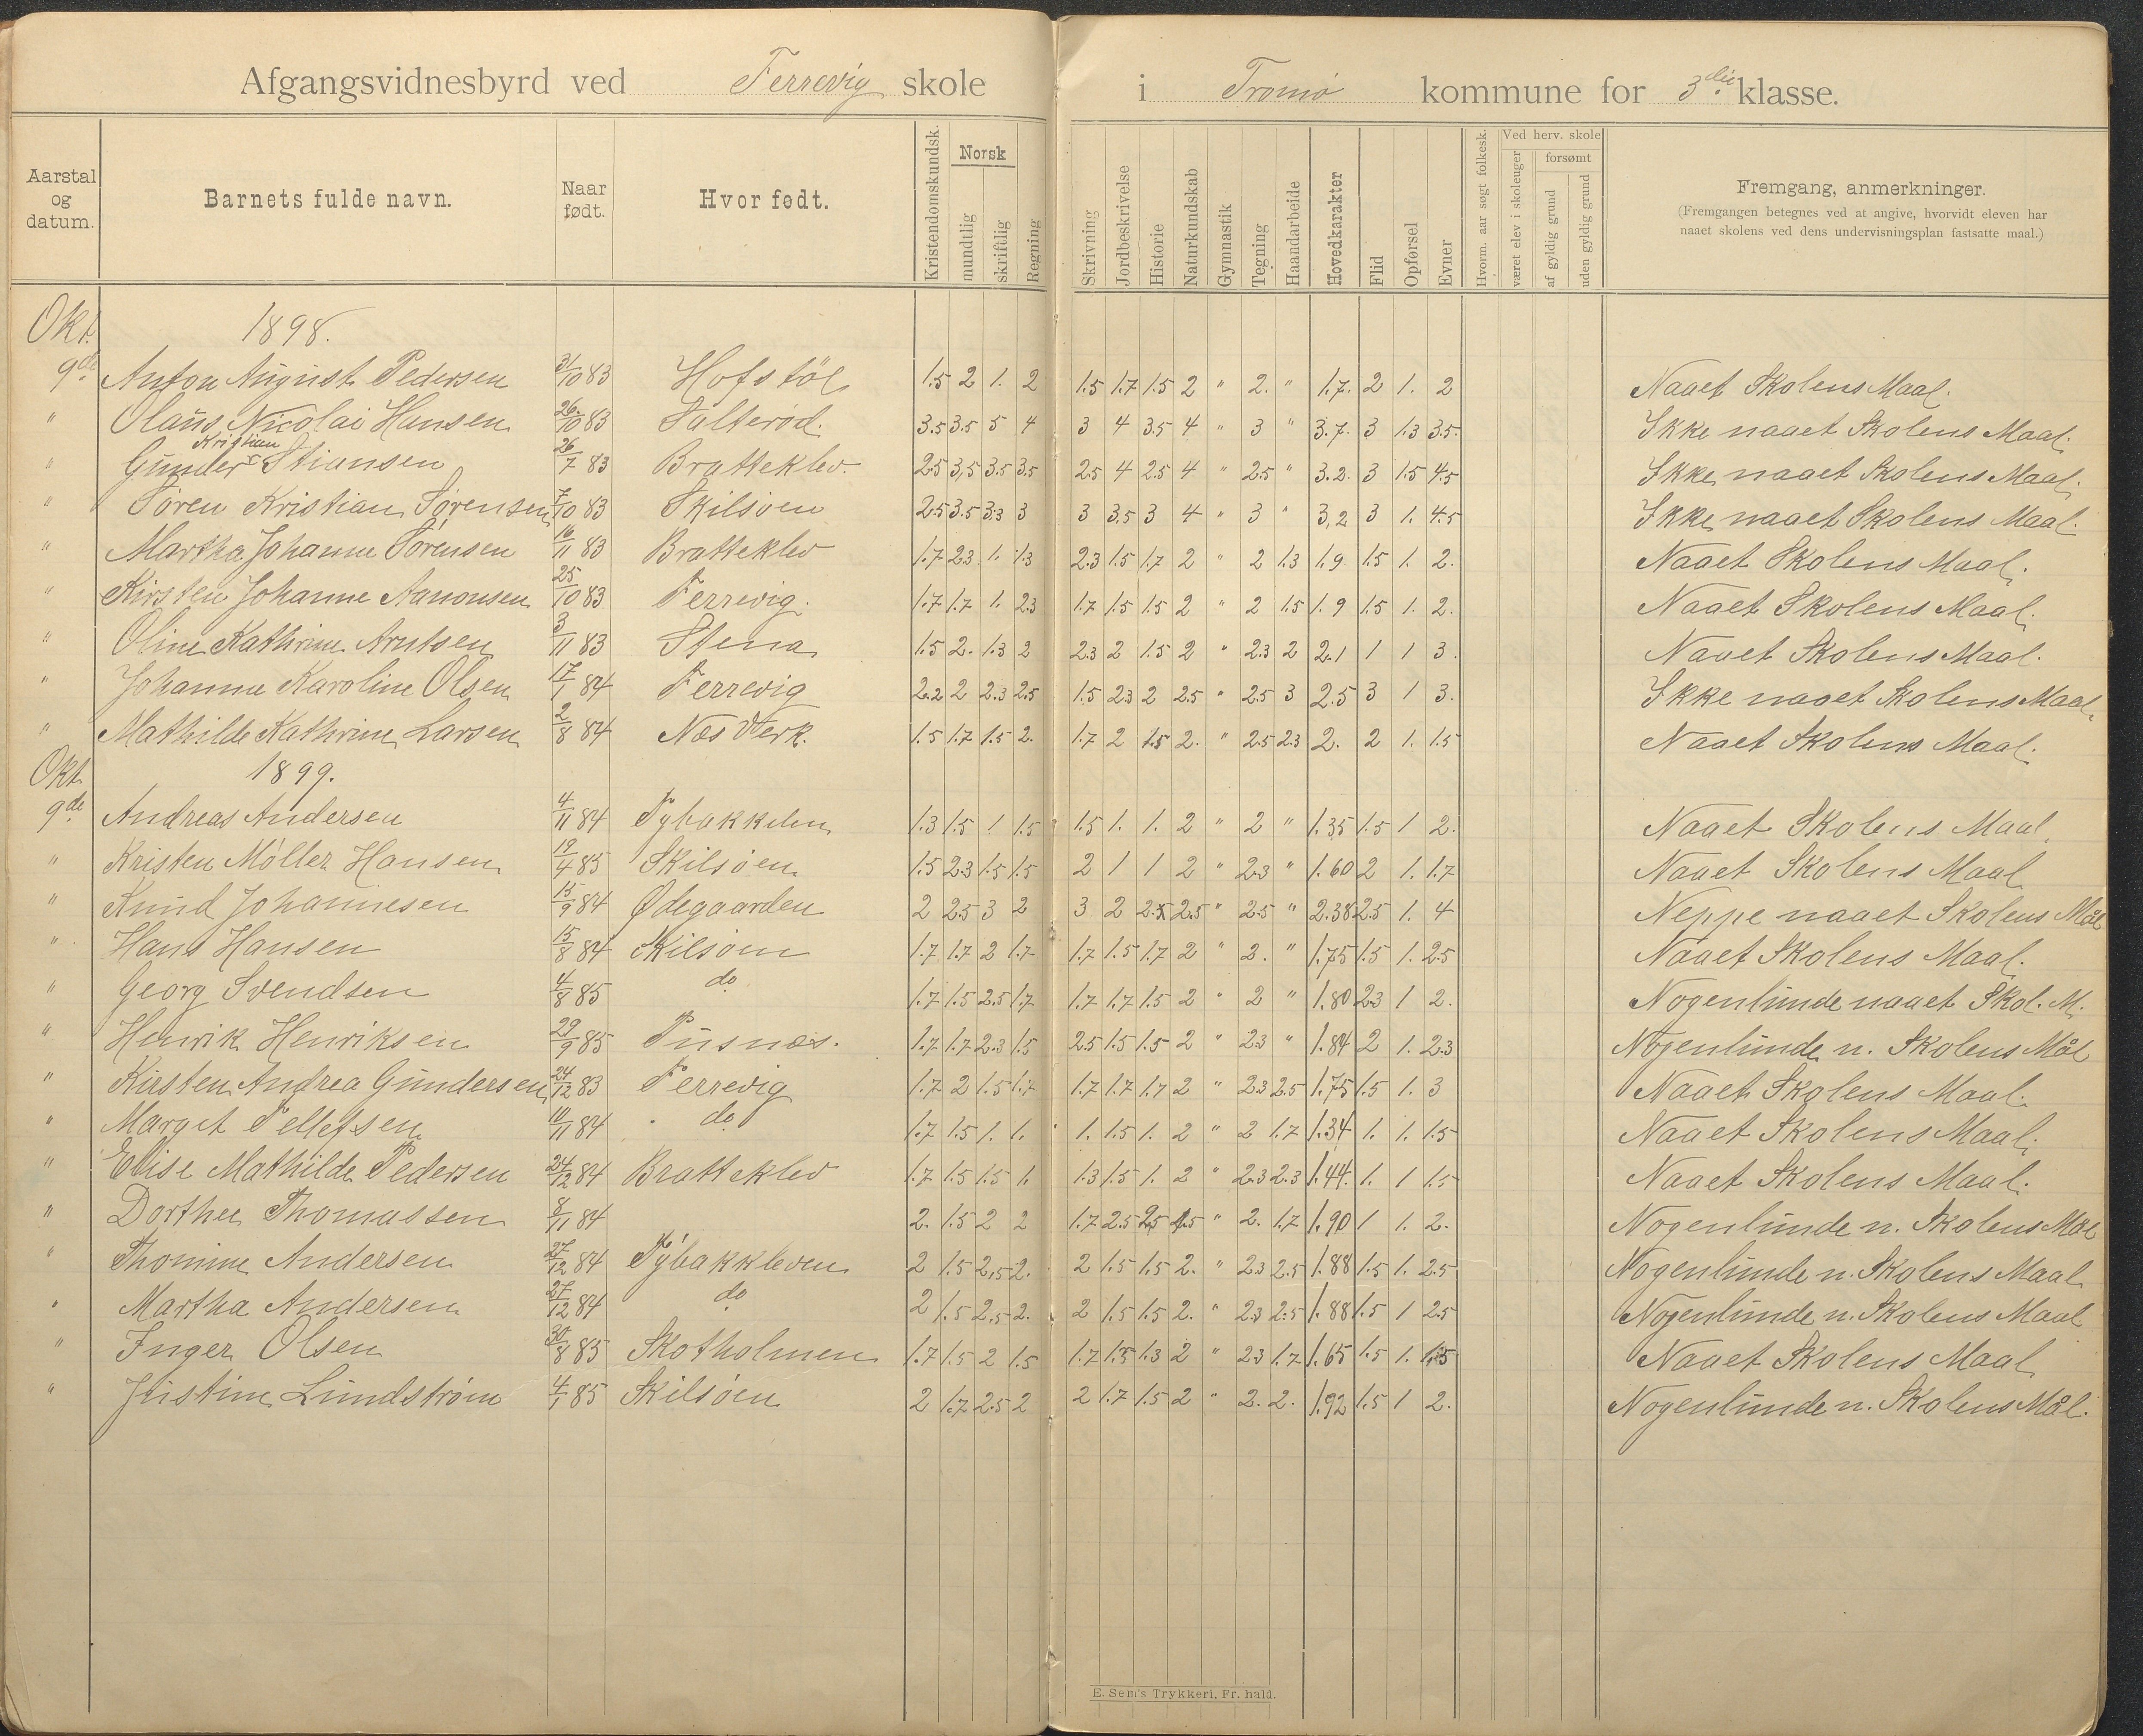 Afgangsvidnesbyrd ved Færrevig skole i Tromø kommune for 3die klasse.
Aarstal og datum. | Barnets fulde navn. | Naar født. | Hvor født. | Kristendomskundsk. | Norsk mundtlig | skriftlig | Regning | Skrivning | Jordbeskrivelse | Historie | Naturkundskab | Gymnastik | Tegning | Haandarbeide | Hovedkarakter | Flid | Opførsel | Evner | Hvorm. aar søgt folkesk. | Ved herv. skole været elev i skoleuger | forsømt af gyldig grund | uden gyldig grund | Fremgang, anmerkninger. (Fremgangen betegnes ved at angive, hvorvidt eleven har naaet skolens ved dens undervisningsplan fastsatte maal.)
Okt. 1898.
9de Anton August Pedersen 31/10 83 Hofstöl 1.5 2 1. 2 1.5 1.7 1.5 2 " 2. " 1.7. 2 1. 2 Naaet Skolens Maal.
" Olaus Nicolai Hansen 26/10 83 Salterød. 3.5 3.5 5 4 3 4 3.5 4 " 3 " 3.7. 3 1.3 3.5. Ikke naaet Skolens Maal.
" Gunder Kristian Stiansen 26/7 83 Bratteklev. 2.5 3,5 3.5 3.5 2.5 4 2.5 4 " 2.5 " 3.2. 3 1.5 4.5 Ikke naaet Skolens Maal.
" Søren Kristian Sørensen 7/10 83 Skilsøen 2.5 3.5 3.3 3 3 3.5 3 4 " 3 " 3,2 3 1. 4.5 Ikke naaet Skolens Maal.
" Martha Johanne Sørensen 16/11 83 Bratteklev 1.7 2.3 1. 1.3 2.3 1.5 1.7 2 " 2 1.3 1.9. 1.5 1. 2. Naaet Skolens Maal.
" Kirsten Johanne Aanonsen 25/10 83 Færrevig. 1.7 1.7 1. 2.3 1.7 1.5 1.5 2 " 2 1.5 1.9 1.5 1. 2. Naaet Skolens Maal.
" Oline Kathrine Arntsen 3/11 83 Stena 1.5 2. 1.3 2 2.3 2 1.5 2 " 2.3 2 2.1 1 1 3. Naaet Skolens Maal.
" Johanne Karoline Olsen 17/1 84 Færrevig 2.2 2 2.3 2.5 1.5 2.3 2 2.5 " 2.5 3 2.5 3 1 3. Ikke naaet Skolens Maal.
" Mathilde Kathrine Larsen 2/8 84 Næs Værk. 1.5 1.7 1.5 2. 1.7 2 1.5 2. " 2.5 2.3 2. 2 1. 1.5 Naaet Skolens Maal.
Okt. 1899.
9de Andreas Andersen 4/11 84 Tybakkden 1.3 1.5 1 1.5 1.5 1. 1. 2 " 2 " 1.35 1.5 1 2. Naaet Skolens Maal.
" Kristen Møller Hansen 19/4 85 Skilsøen. 1.5 2.3 1.5 1.5 2 1 1 2 " 2.3 " 1.60 2 1. 1.7 Naaet Skolens Maal
" Knud Johannesen 15/9 84 Ødegaarden 2 2.5 3 2 3 2 2.5 2.5 " 2.5 " 2.38 2.5 1. 4 Neppe naaet Skolens Mål
" Hans Hansen 15/8 84 Skilsøen 1.7 1.7 2 1.7 1.7 1.5 1.7 2 " 2. " 1.75 1.5 1. 2.5 Naaet Skolens Maal.
" Georg Svendsen 4/8 85 do 1.7 1.5 2.5 1.7 1.7 1.7 1.5 2 " 2 " 1.80 2.3 1 2. Nogenlunde naaet Skol. M.
" Henrik Henriksen 29/9 85 Pusnæs. 1.7 1.7 2.3 1.5 2.5 1.5 1.5 2 " 2.3 " 1.84 2 1. 2.3 Nogenlunde n. Skolens Mål
" Kirsten Andrea Gundersen 24/12 83 Færrevig 1.7 2 1.5 1.7 1.7 1.7 1.7 2 " 2.3 2.5 1.75 1.5 1. 3 Naaet Skolens Maal.
" Margit Tellefsen 10/11 84 do 1.7 1.5 1. 1. 1. 1.5 1. 2 " 2 1.7 1.34 1. 1. 1.5 Naaet Skolens Maal.
" Elise Mathilde Pedersen 24/12 84 Bratteklev 1.7 1.5 1.5 1. 1.3 1.5 1. 2 " 2.3 2.3 1.44. 1. 1 1.5 Naaet Skolens Maal.
" Dorthea Thomassen 8/11 84 2. 1.5 2 2 1.7 2.5 2.5 1.5 " 2. 1.7 1.90 1 1. 2. Nogenlunde n. Skolens Mål
" Thomine Andersen 27/12 84 Tybakkleven 2 1.5 2,5 2. 2 1.5 1.5 2. " 2.3 2.5 1.88 1.5 1. 2.5 Nogenlunde n. Skolens Maal
" Martha Andersen 27/12 84 do 2 1.5 2,5 2. 2 1.5 1.5 2. " 2.3 2.5 1.88 1.5 1 2.5 Nogenlunde n. Skolens Maal
" Inger Olsen 30/8 85 Skotholmen 1.7 1.5 2 1.5 1.7 1.5 1.3 2 " 2.3 1.7 1.65 1.5 1. 1.5 Naaet Skolens Maal
" Justine Lundstrøm 4/1 85 Skilsøen 2 1.7 2.5 2 2 1.7 1.5 2 " 2. 2. 1.92 1.5 1 2. Nogenlunde n. Skolens Mål.
E. Sem's Trykkeri, Fr. hald.